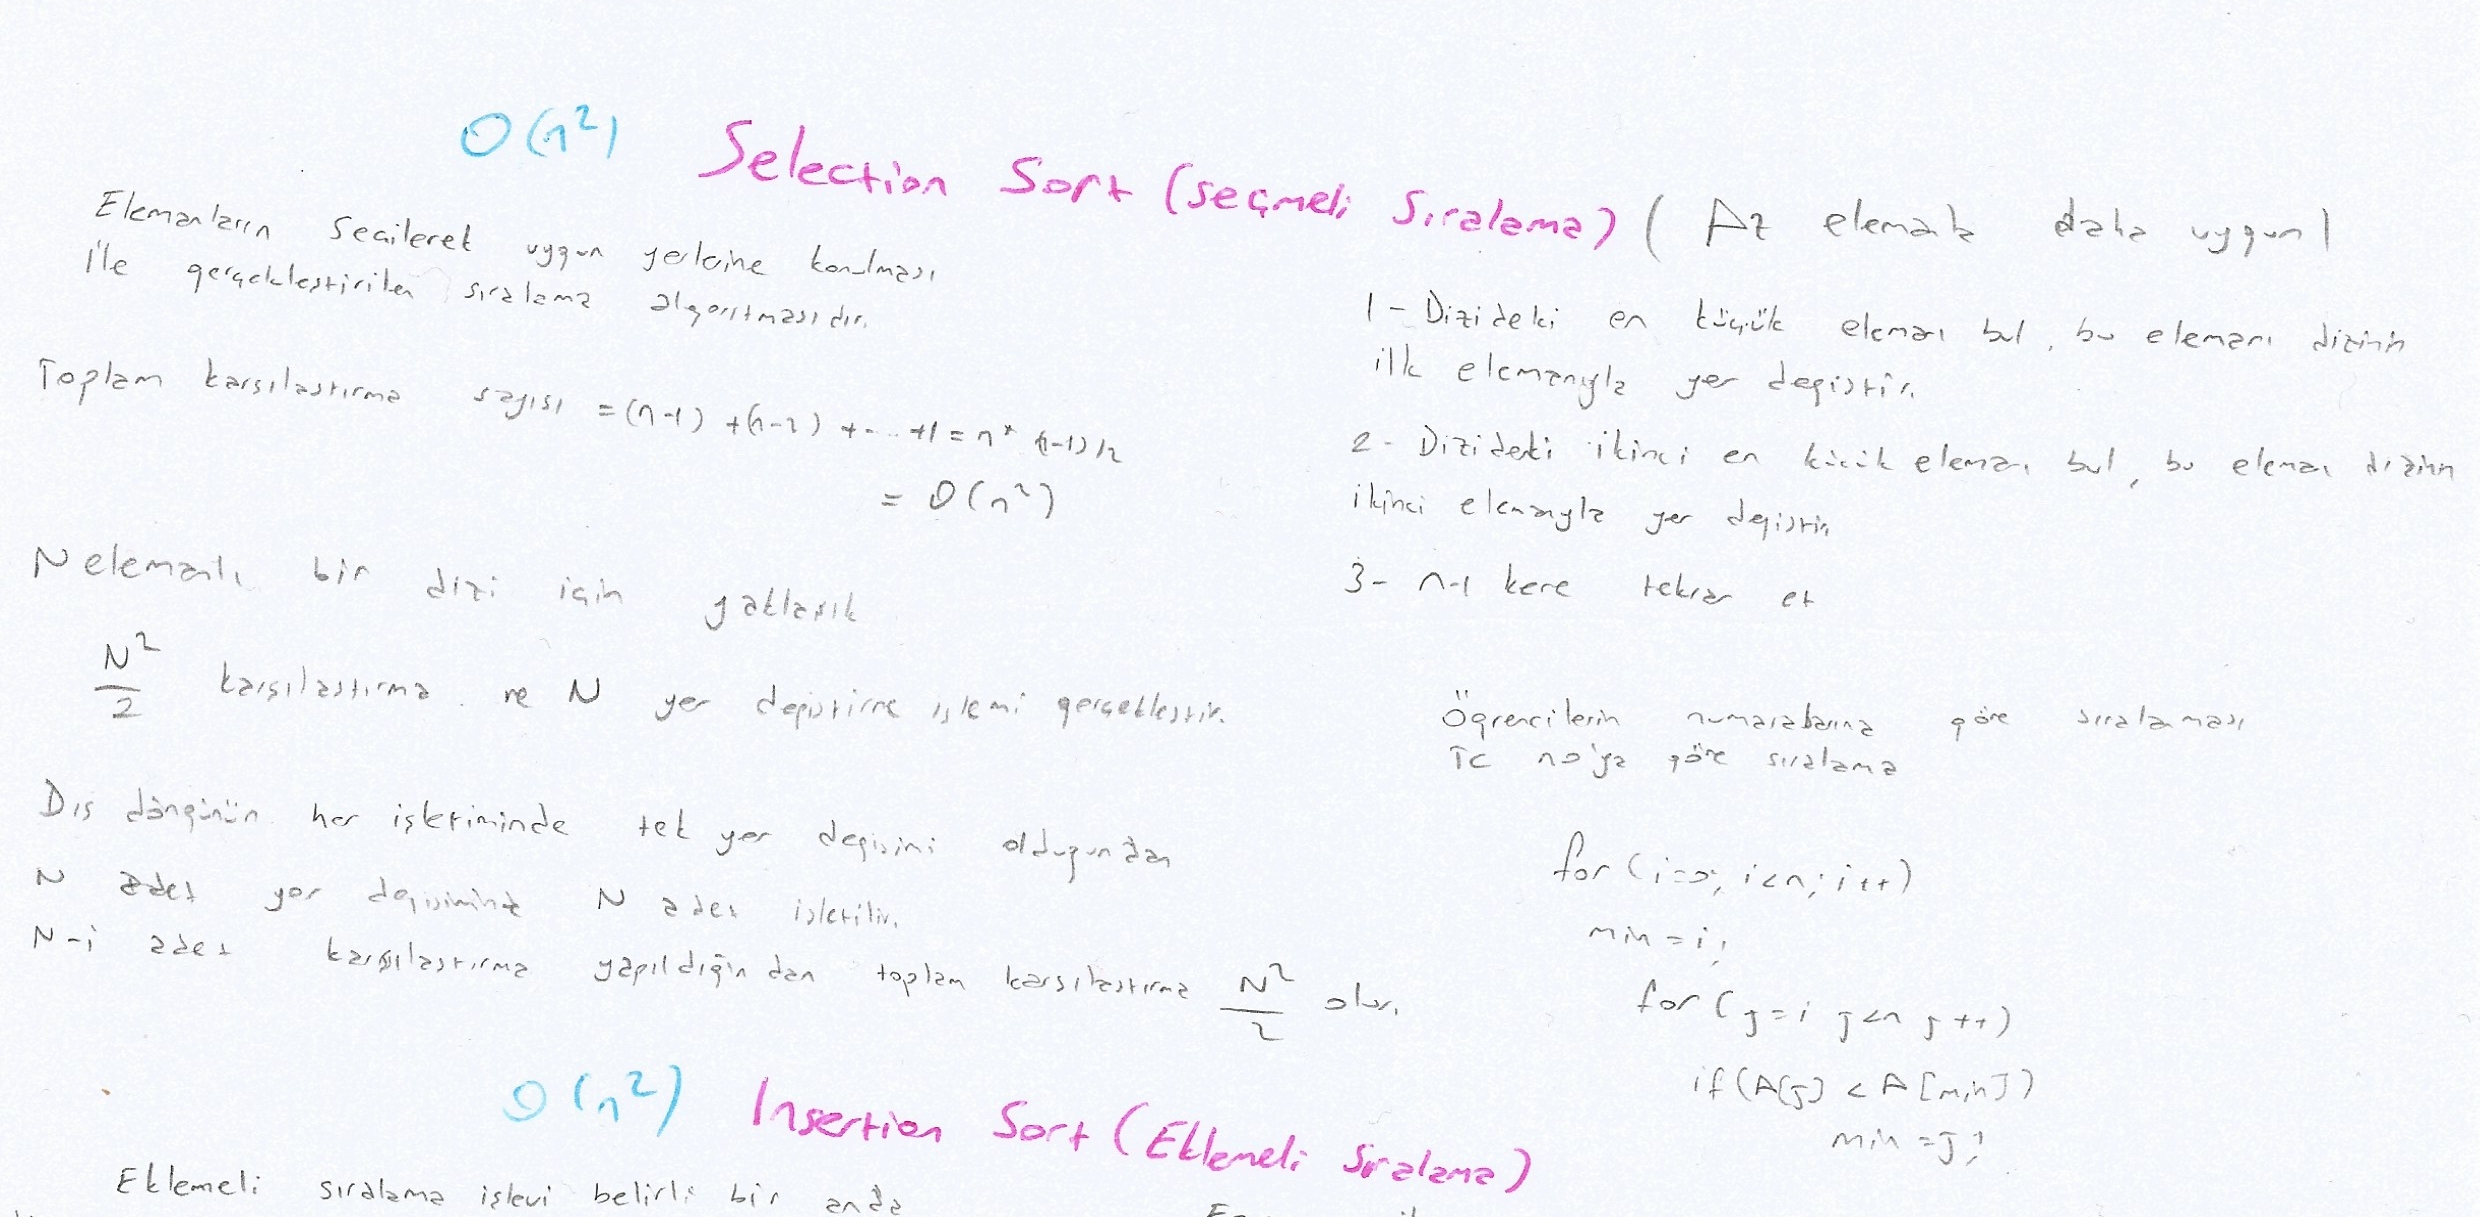 O(n²) Selection Sort (Seçmeli Sıralama) ( Az elemanla daha uygun)
Elemanların Seçilerek uygun yerlerine konulması
ile gerçekleştirilen sıralama algoritmasıdır.
Toplam karşılaştırma sayısı =(n-1) +(n-2) +....+1 = n* (n-1)/2
= O(n²)
N elemanlı bir dizi için yaklaşık
N²/2 karşılaştırma ve N yer değiştirme işlemi gerçekleştir.
Dış döngünün her işletiminde tek yer değişimi olduğundan
N adet yer değişiminde N adet işletilir.
N-i adet karşılaştırma yapıldığından toplam karşılaştırma N²/2 olur.
1 - Dizideki en küçük elemanı bul, bu elemanı dizinin
ilk elemanıyla yer değiştir.
2 - Dizideki ikinci en küçük elemanı bul, bu elemanı dizinin
ikinci elemanıyla yer değiştir.
3- n-1 kere tekrar et
Öğrencilerin numaralarına göre sıralanması
TC no'ya göre sıralama
for (i=0; i<n; i++)
min = i;
for (j=i j<n j++)
if (A[j] < A[min])
min = j;
O(n²) Insertion Sort (Eklemeli Sıralama)
Eklemeli sıralama işlevi belirli bir anda